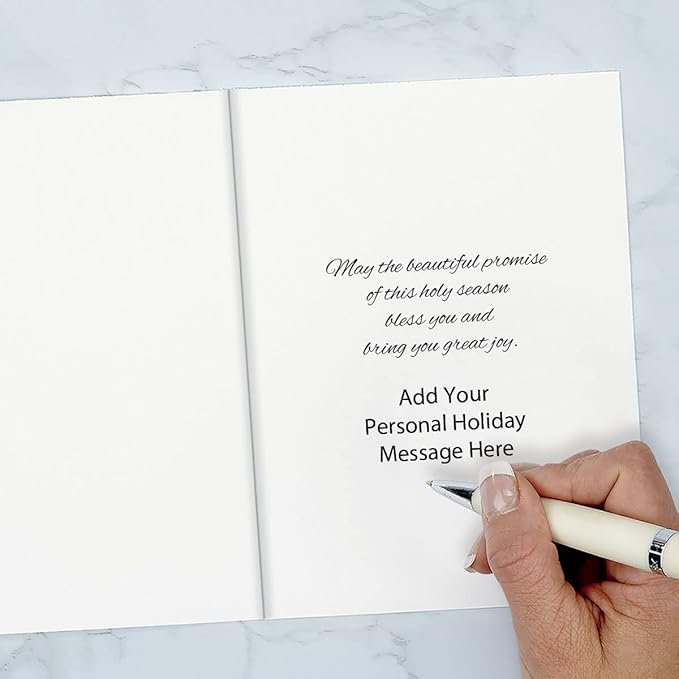 May the beautiful promise
of this holy season
bless you and
bring you great joy.
Add Your
Personal Holiday
Message Here